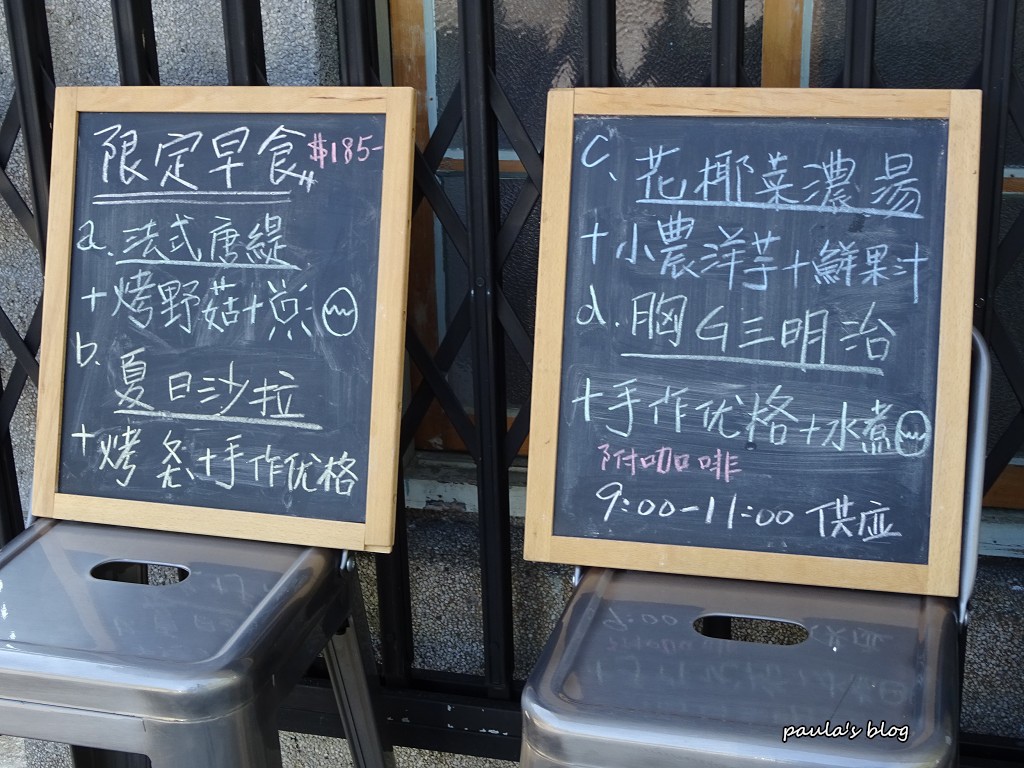 限定早食 $185-
a. 法式唐緹
+烤野菇+炭
b. 夏日沙拉
+烤 +手作优格
c、花椰菜濃湯
+小農洋芋+鮮果汁
d. 胸G三明治
+手作优格+水煮
附咖啡
9:00-11:00 供应
paula's blog